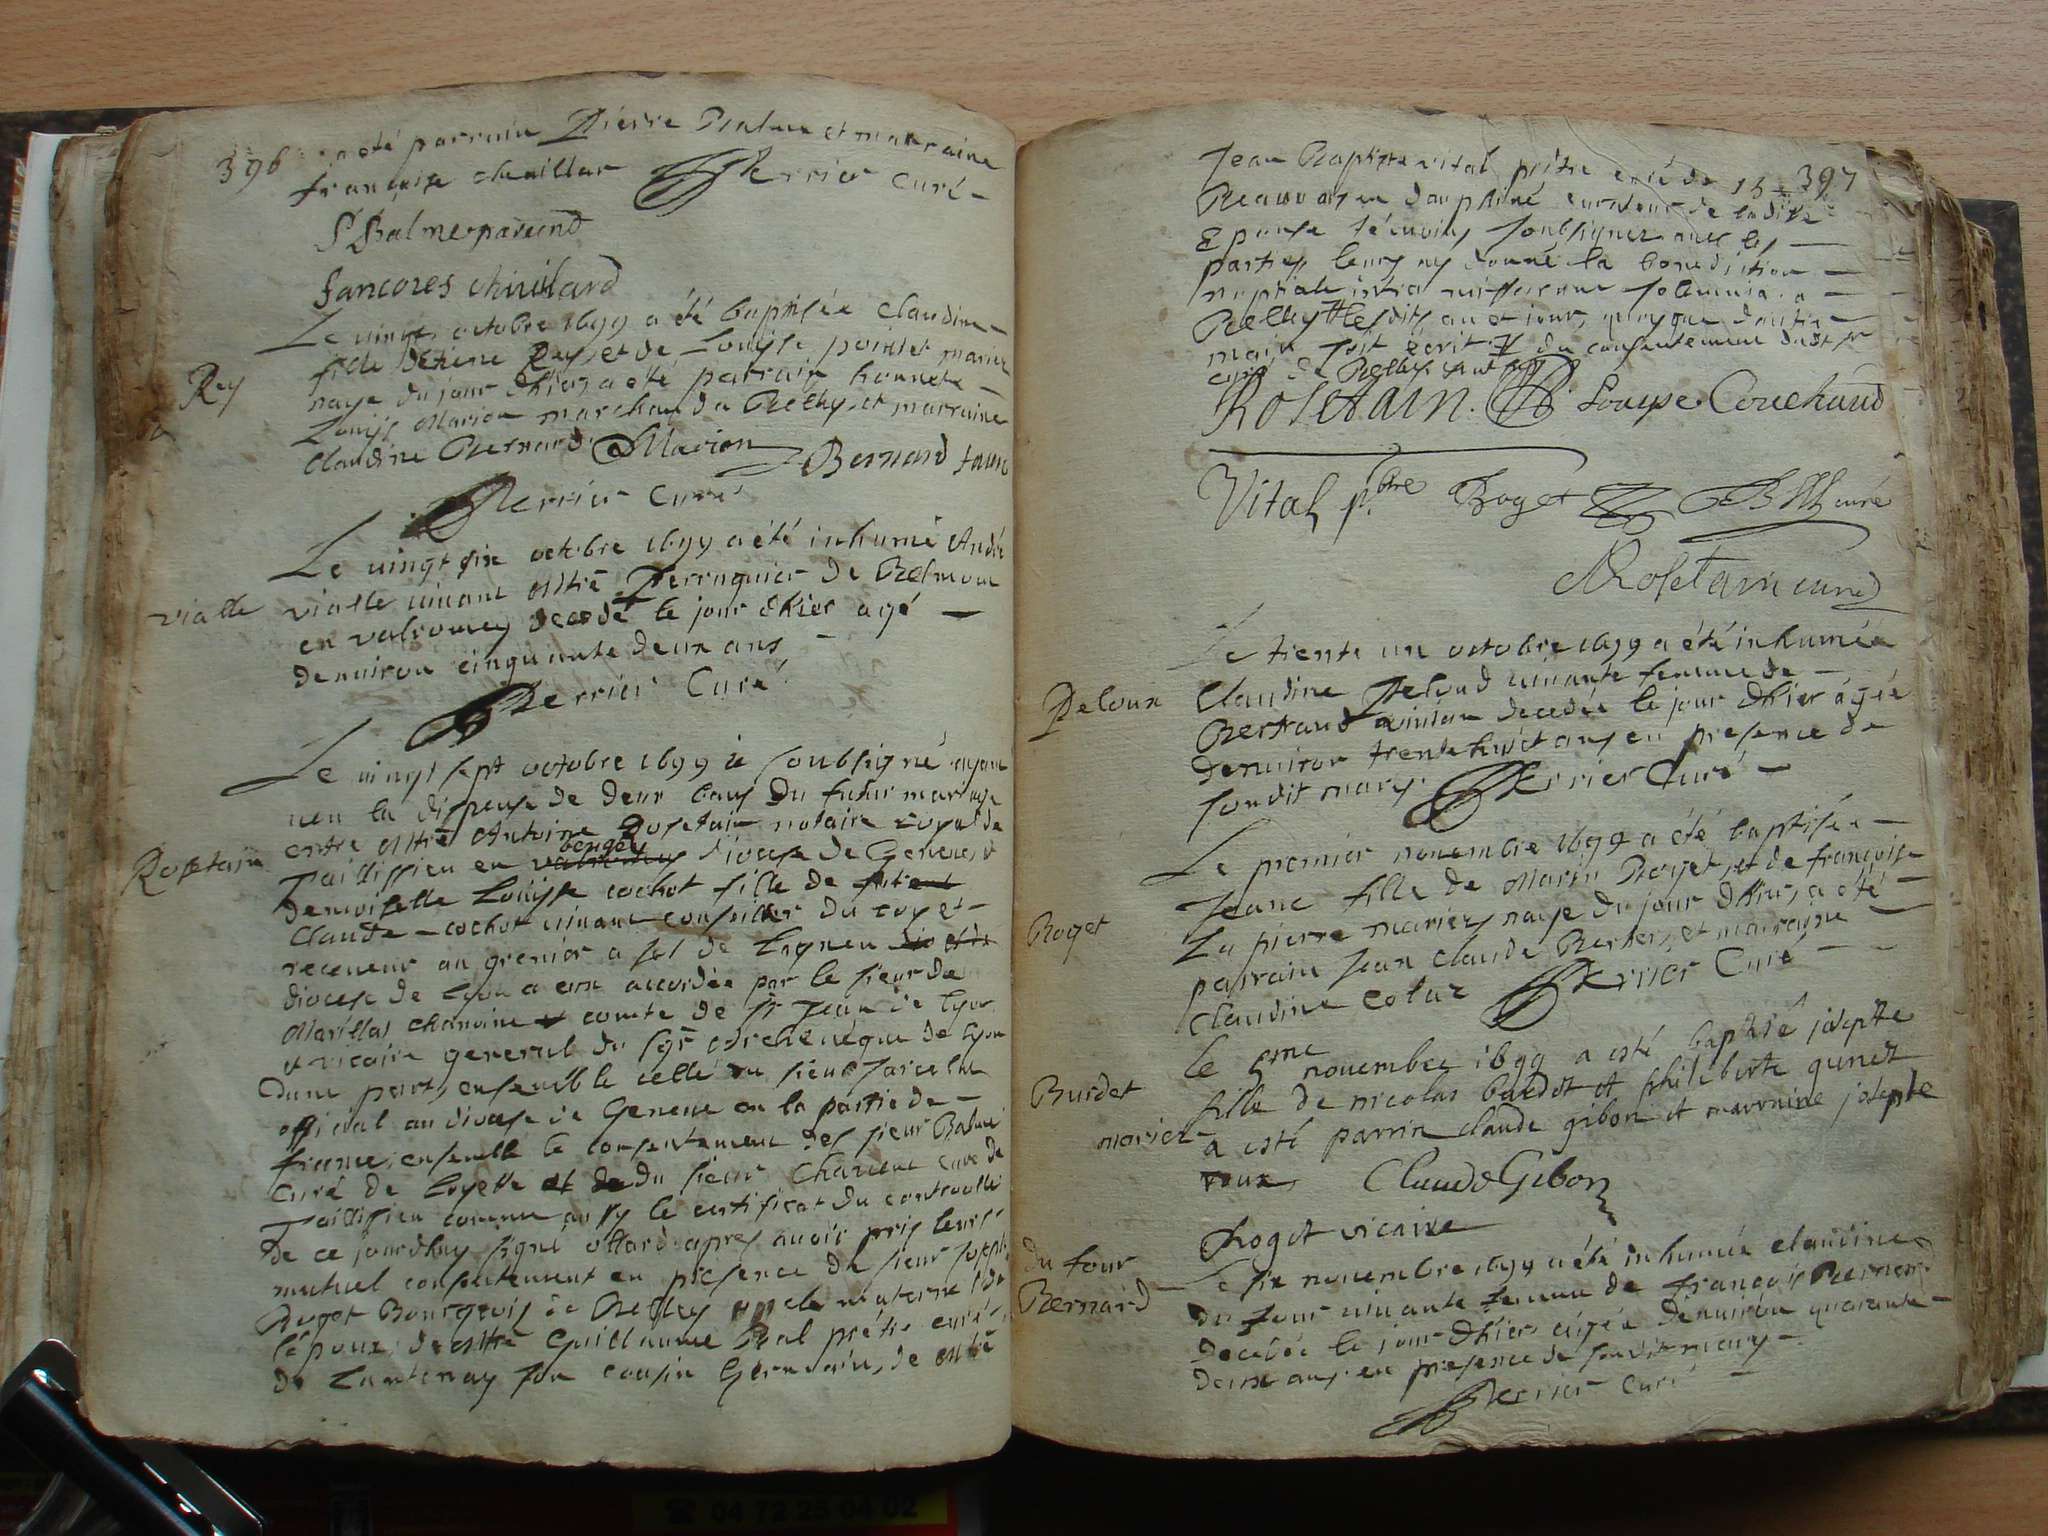 396
a été parrain Pierre Balme et marraine
françoise chevillar Perrier Curé
P Balme parrin
fancoies chivilard
Le vingt octobre 1699 a été baptisée Claudine
fille Detiene Rey et de Louyse poinset mariez
Rey
naye du jour dhier a été parrain honnete
Louys Marion marchand a Belley et marraine
Claudine Bernard Marion Bernard
Perrier Curé
Le vingt six octobre 1699 a été inhumé André
vialle
vialle vivant Mtre Perruquier de Belmont
en valromey decedé le jour dhier agé
denviron cinquante deux ans
Perrier Curé
Le vingt sept octobre 1699 je soubsigné ayant
veu la dispense de deux bans du futur mariage
entre Mtre Antoine Rosetain notaire royal de
bengey
Rosetain
en diocese de Geneve et
demoiselle Louyse cochot fille de
Claude cochot vivant conseiller du roy et
receveur au grenier a sel de
diocese de Lyon a eux accordée par le sieur de
Marillas chanoine comte de St Jean de Lyon
et vicaire general du sgr Archevéque de Lyon
dune part, ensemble celle du sieur
official au diocese de Geneve en la partie de
france, ensemble le consentement des sieur Balme
Curé de Loyette du sieur curé de
comme aussy le certificat du controolle
de ce jourdhuy signé ollard apres avoir pris leurs
mutuel consentement en presence de sieur
Roget Bourgeois de Belley oncle maternel de
lépoux, de Mtre Guillaume Bal prétre curé
de Lantenay son cousin Germain, de Mtre
397
Jean Baptiste vital prétre curé de
en dauphiné curateur de ladite
Epouse témoins soubsignez avec les
parties, leurs ay donné la benediction
nuptiale missarum sollemnia a
Belley lesdits an et jour, quoyque dautre
main soit écrit du consentement dudit sr
curé de Belley
Rosetain. Louyse Couchaud
Vital pbtre Roget curé
Rosetain
Le trente un octobre 1699 a été inhumée
Peloux
Claudine Peloud vivante femme de
Bertrand decedée le jour dhier agée
denviron trente huict ans en presence de
soudit mary. Perrier Curé
Le premier novembre 1699 a été baptisée
Jeane fille de Marin Royet, et de françoise
Royet
La pierre mariez naye du jour dhier, a été
parrain Jean Claude Berther, et marraine
Claudine colaz Perrier Curé
le 5me novembre 1699 a esté baptisé josepte
Burdet
fille de nicolas burdet et philiberte
mariez
a esté parrin claude gibon et marraine josepte
roux Claude Gibon
Roget vicaire
du four
Le six novembre 1699 a été inhumée claudine
Bernard
du four vivante femme de françois Bernard
decedée le jour dhier, agée denviron quarante
deux ans en presence de soudit mary
Perrier Curé
04 72 25 04 02